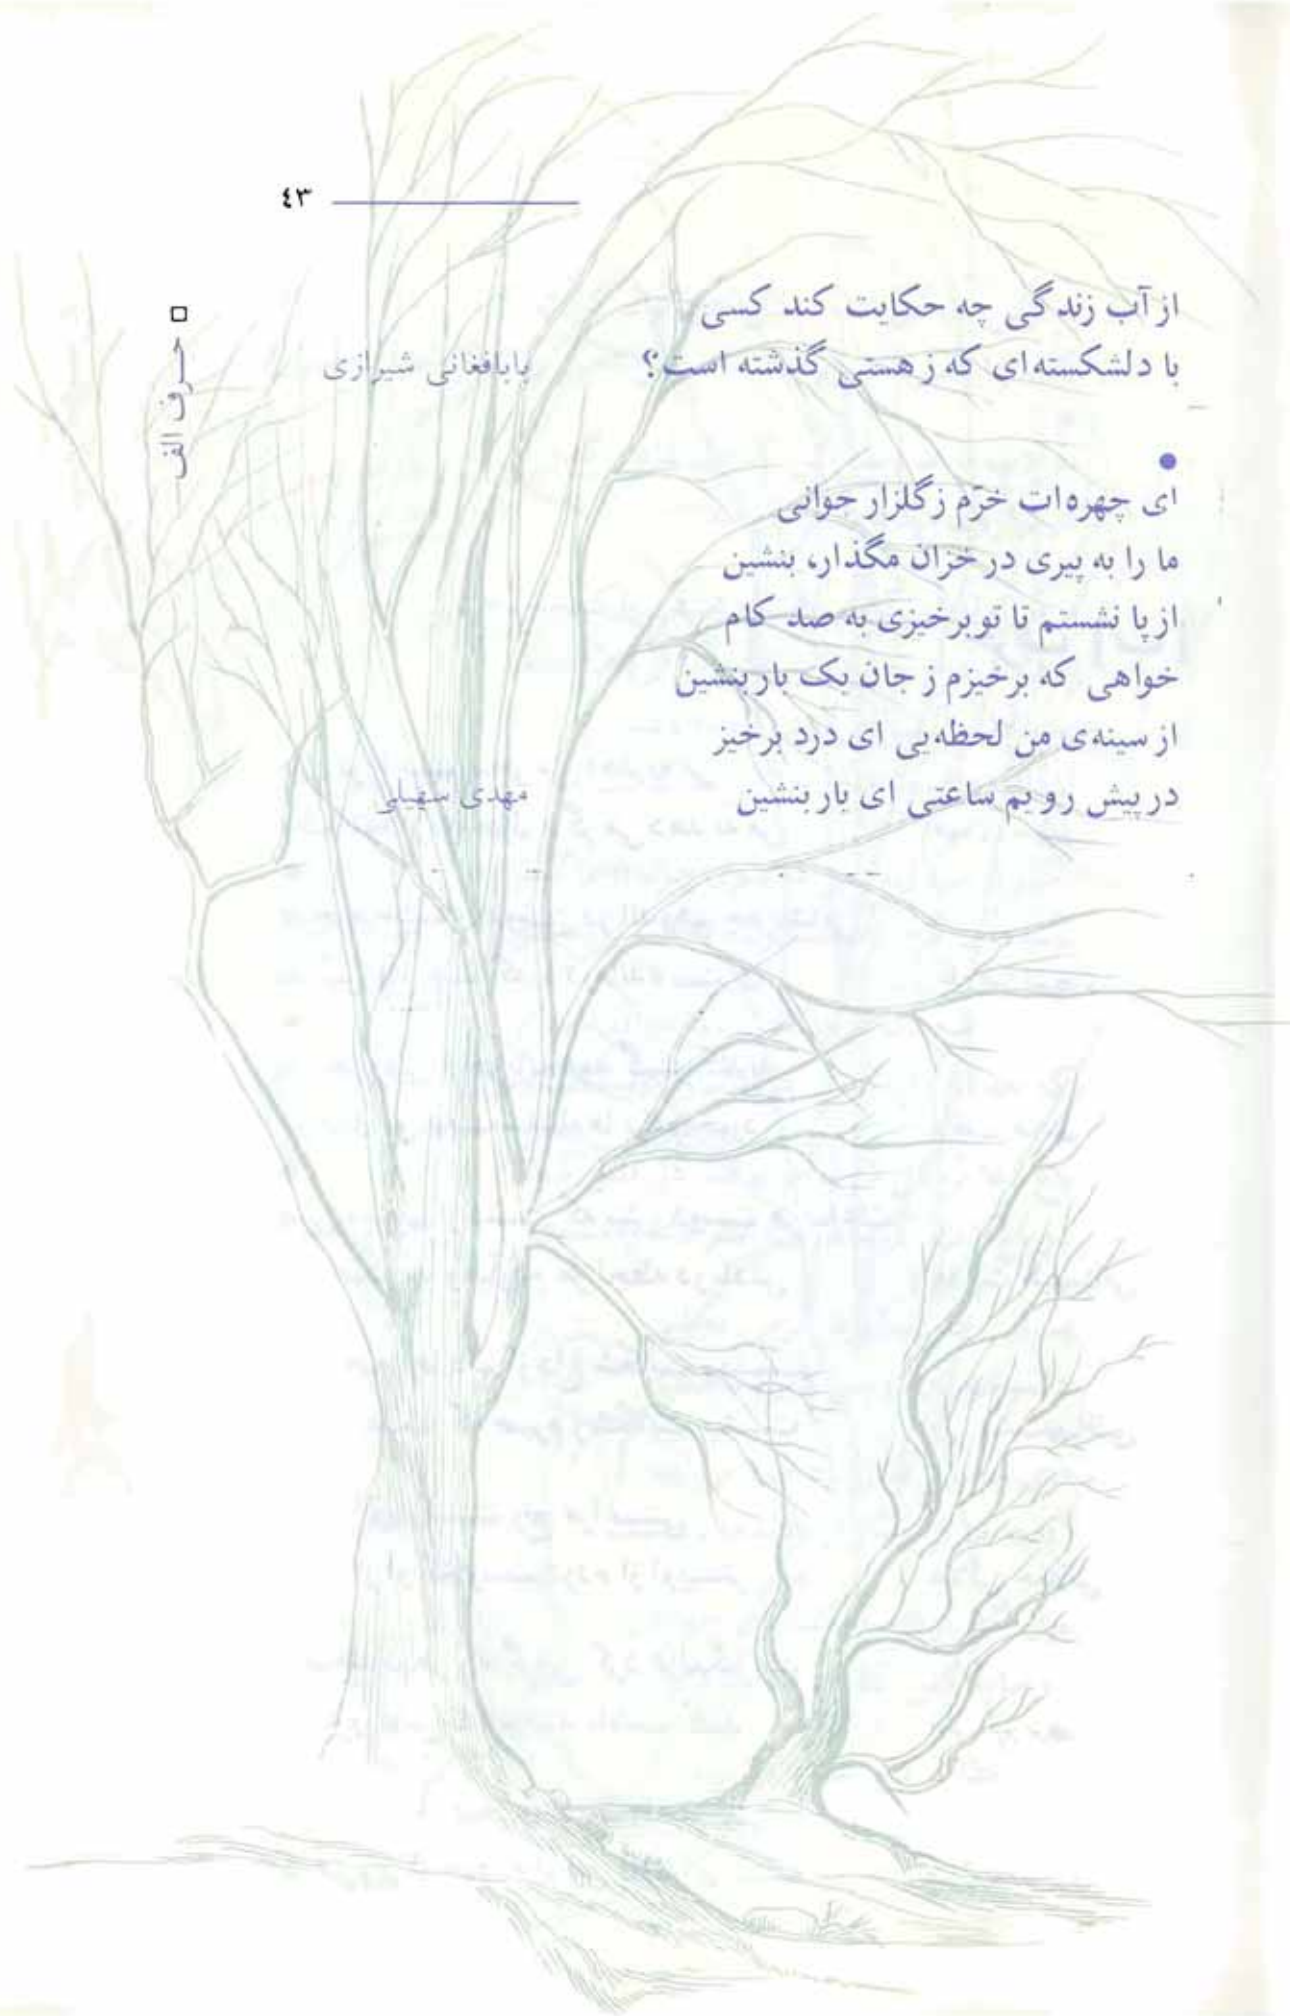 ۴۳
□ حرف الف
از آب زندگی چه حکایت کند کسی
با دلشکسته‌ای که ز هستی گذشته است؟ بابافغانی شیرازی
●
ای چهره‌ات خرّم ز گلزار جوانی
ما را به پیری در خزان مگذار، بنشین
از پا نشستم تا تو برخیزی به صد کام
خواهی که برخیزم ز جان یک بار بنشین
از سینه‌ی من لحظه‌یی ای درد برخیز
در پیش رویم ساعتی ای یار بنشین مهدی سهیلی